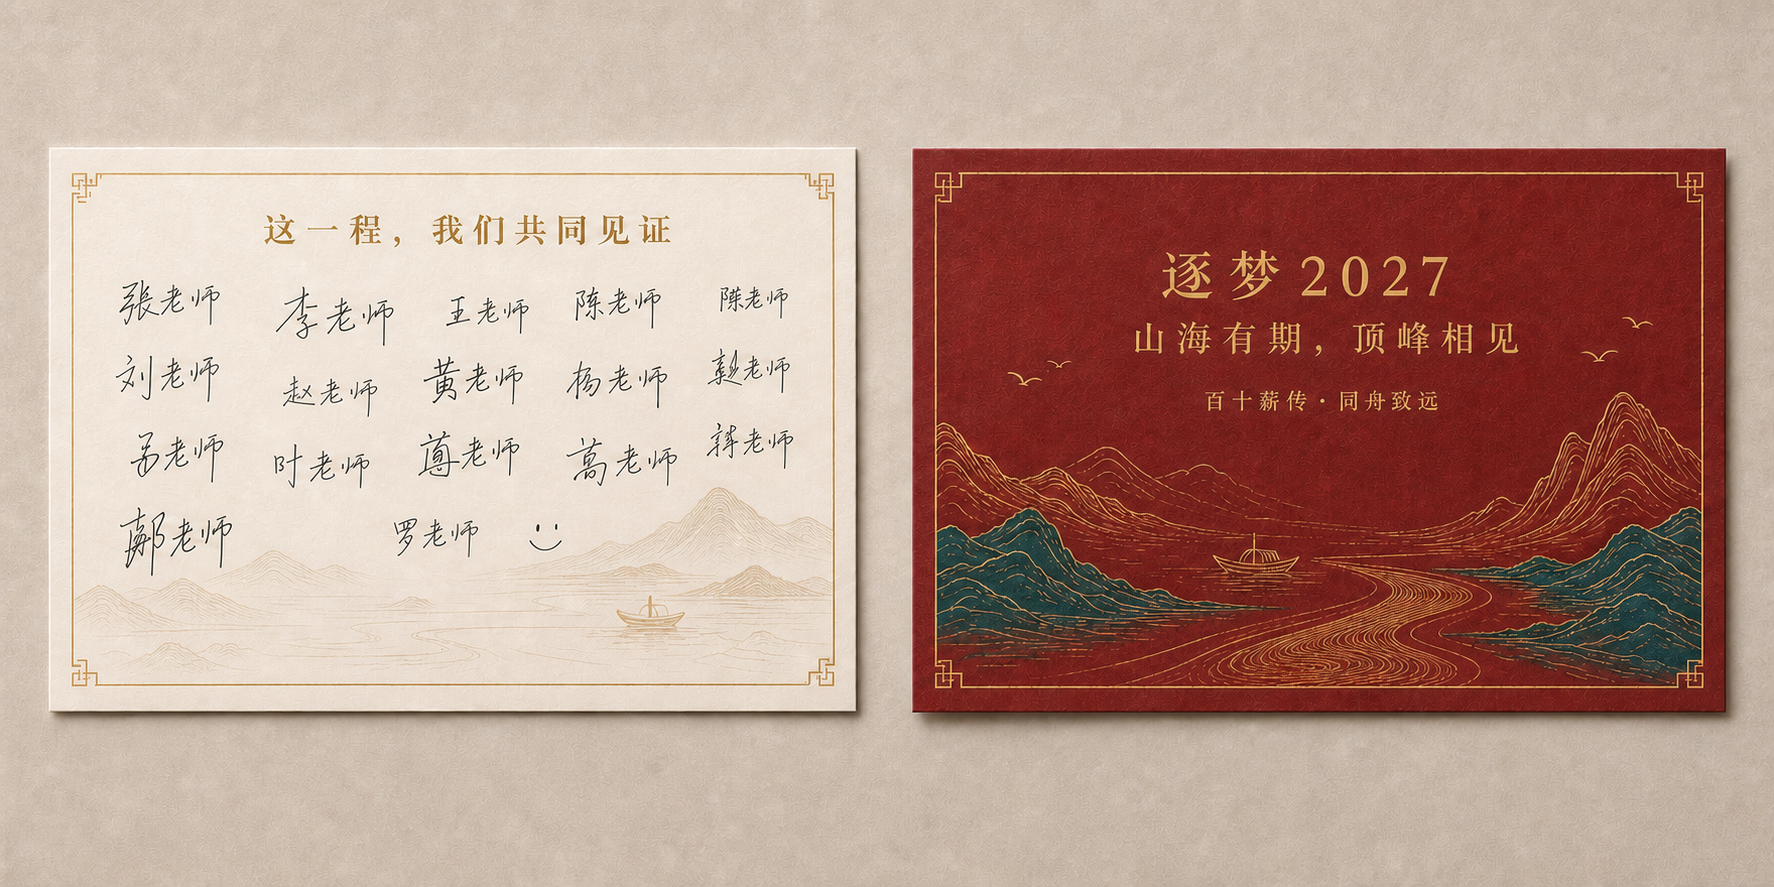 这一程，我们共同见证
張老师 李老师 王老师 陈老师 老师
刘老师 赵老师 黄老师 杨老师 老师
老师 叶老师 老师 萬老师 老师
老师 罗老师
逐梦2027
山海有期，顶峰相见
百十薪传·同舟致远